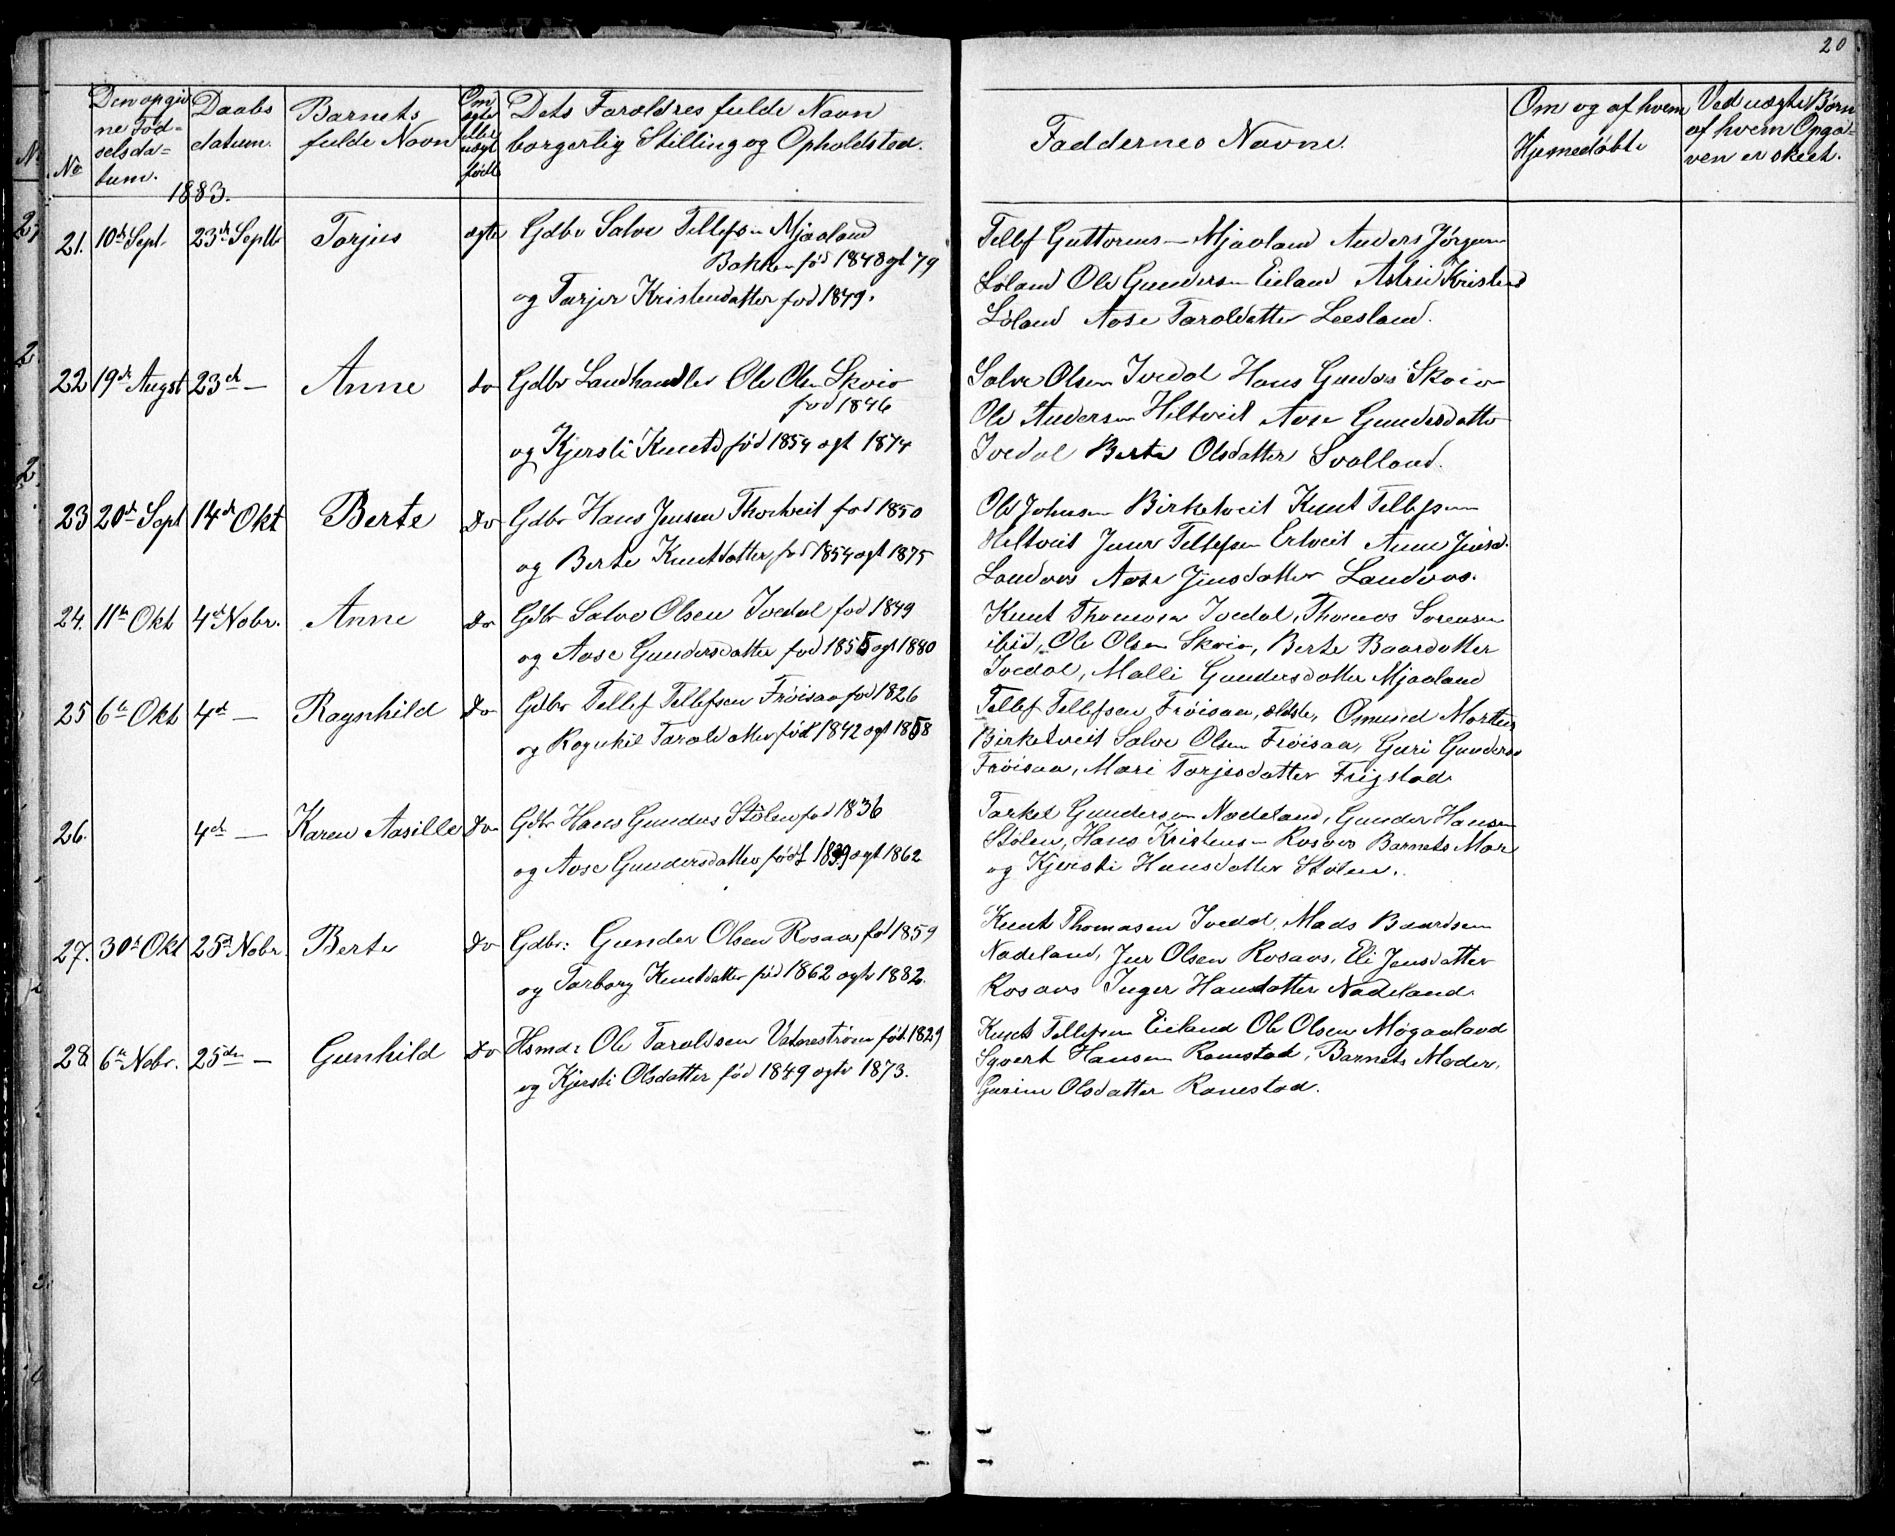 20
No
Den opgiv
ne Fød=
selsda=
tum.
Daabs
datum.
Barnets
fulde Navn
Om
ægte
eller
uægt
født
Dets Foræeldres fulde Navn
borgerlig Stilling og Opholdsted.
Faddernes Navne.
Om og af hvem
Hjemedøbt
Ved uægte Børn
af hvem Opga=
ven er skeet.
1883.
21. 10de Sept. 23de Septbr Torjus ægte Gdbr Salve Tellefsen Mjaaland
Bakken fød 1848 gt 79
og Tarjer Kristensdatter fød 1849.
Tellef Guttormsen Mjaaland Anders Jørgensen
Løland Ole Gundersen Eieland Astrid Kristensd
Løland Aase Taroldatter Leesland.
22 19de Augst 23de — Anne do Gdbr Landhandler Ole Olsen Skeie
fød 1846
og Kjersti Knutsd fød 1854 ogt 1874
Salve Olsen Ivedal Hans Gunders Skeie
Ole Andersen Heltveit Aase Gundersdatter
Ivedal Berte Olsdatter Svalland.
23 20de Sept 14de Okt Berte Do Gdbr Hans Jensen Thortveit fød 1850
og Berte Knutdatter fød 1854 ogt 1875
Ole Johnsen Birketveit Knut Tellefsen
Heltveit Juur Tellefsen Ertveit Anne Jensd.
Landaas Aase Jensdatter Landaas.
24. 11te Okt 4de Nobr. Anne Do Gdbr Salve Olsen Ivedal fød 1849
og Aase Gundersdatter fød 1855 ogt 1880
Knut Thomasen Ivedal, Thomas Sorensen
ibid, Ole Olsen Skeie, Berte Baardatter
Ivedal, Malli Gundersdatter Mjaaland
25 6te Okt 4de — Ragnhild Do Gdbr Tellef Tellefsen Frøisaa fød 1826
og Ragnhil Taroldatter fød 1842 ogt 1858
Tellef Tellefsen Frøisaa, ældste, Osmund Mortens
Birketveit Salve Olsen Frøisaa, Guri Gunders
Frøisaa, Mari Torjusdatter Frigstad.
26. 4de — Karen Aasille Do Gdbr Hans Gunders Stølen fød 1836
og Aase Gundersdatter født 1839 ogt 1862
Tarkel Gundersen Nædeland, Gunder Hansen
Stølen, Hans Kristensen Rosaas Barnets Mor
og Kjersti Hansdatter Stølen.
27. 30te Okt 25de Nobr. Berte Do Gdbr: Gunder Olsen Rosaas fød 1859
og Torborg Knutdatter fød 1862 ogtv 1882.
Knut Thomasen Ivedal, Mads Baardsen
Nædeland, Jur Olsen Rosaas, Eli Jensdatter
Rosaas Inger Hansdatter Nædeland.
28. 6te Nobr. 25de — Gunhild Do Hsmd: Ole Taroldsen Vatnestrøm født 1829
og Kjersti Olsdatter fød 1849 ogtv 1873.
Knut Tellefsen Eieland Ole Olsen Møgaaland
Syvert Hansen Ramstad, Barnets Moder,
Gurine Olsdatter Ramestad.